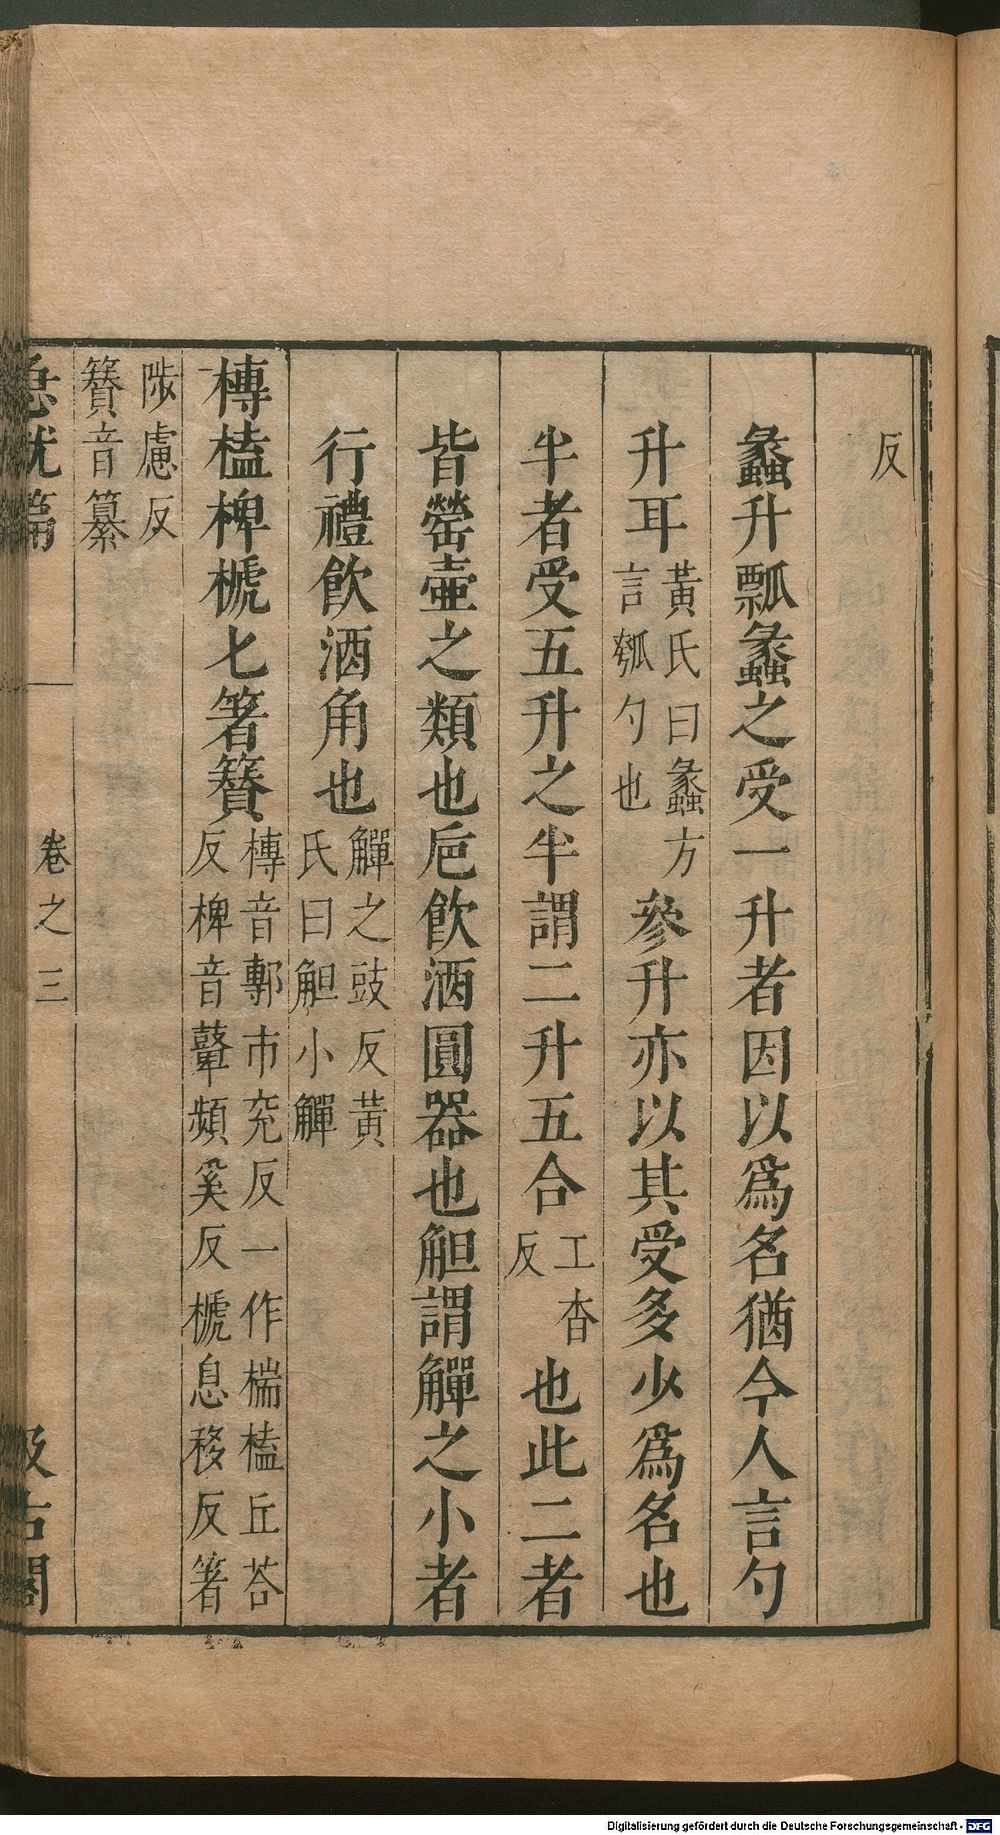 反
蠡升瓢蠡之受一升者因以爲名猶今人言勺
升耳黃氏曰蠡方言瓠勺也參升亦以其受多少爲名也
半者受五升之半謂二升五合工杳反也此二者
皆罃壷之類也巵飲酒圓器也觛謂觶之小者
行禮飲酒角也觶之豉反黃氏曰觛小觶
槫榼椑榹匕箸籫槫音鄟市兖反一作椯榼丘荅反椑音鼙頻奚反榹息移反箸
陟慮反籫音纂
急就篇 卷之三 汲古閣
Digitalisierung gefördert durch die Deutsche Forschungsgemeinschaft - DFG